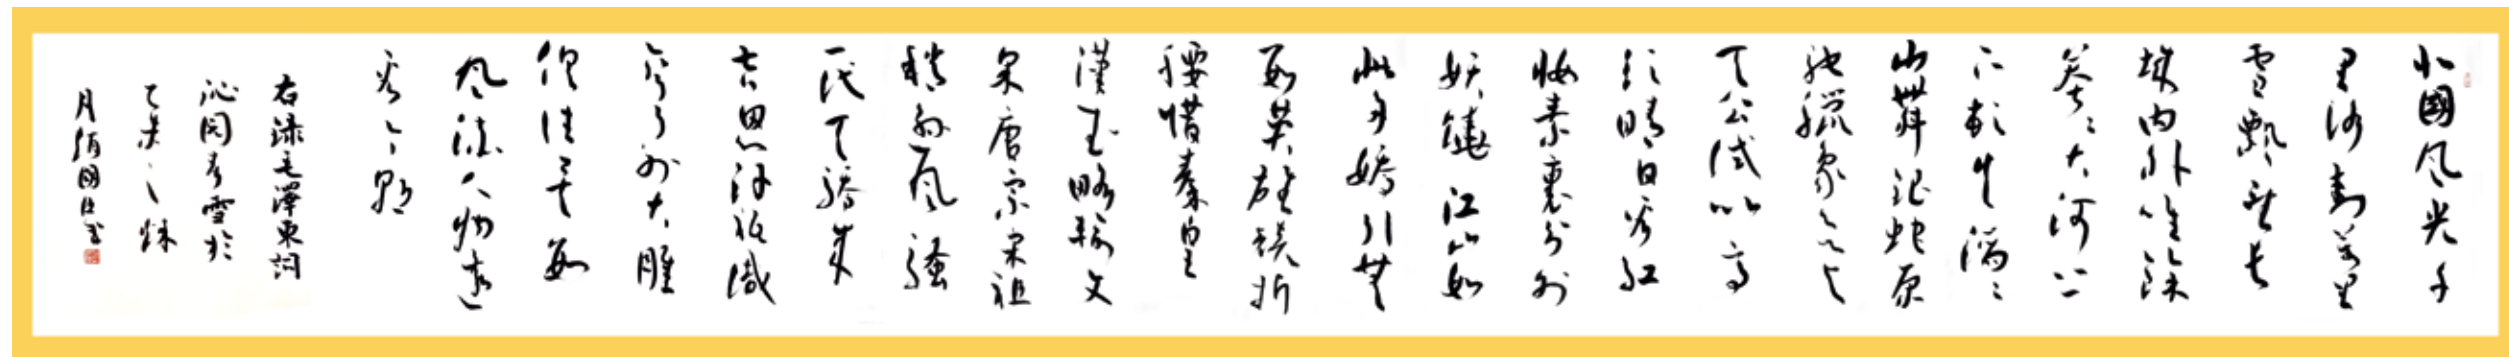 北國風光千
里冰封萬里
雪飄望長
城内外唯餘
莽々大河上
下頓失滔々
山舞銀蛇原
馳蠟象欲与
天公試比高
須晴日看紅
妝素裹分外
妖嬈江山如
此多嬌引無
數英雄競折
腰惜秦皇
漢武略輸文
采唐宗宋祖
稍遜風騷
一代天驕成
吉思汗祇識
彎弓射大雕
俱往矣數
風流人物還
看今朝
右录毛澤東詞
沁园春雪於
乙未之秋
月國書